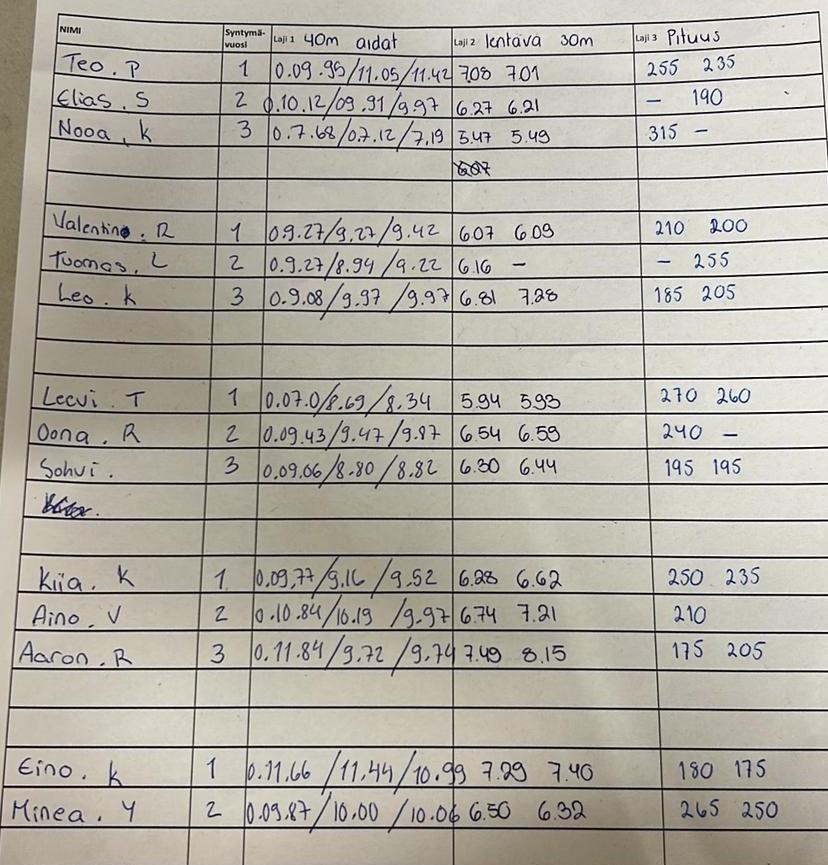 NIMI Syntymä-vuosi Laji 1 40m aidat Laji 2 lentävä 30m Laji 3 Pituus
Teo. P 1 0.09.95/11.05/11.42 7.08 7.01 255 235
Elias. S 2 0.10.12/09.91/9.97 6.27 6.21 – 190
Nooa. K 3 0.7.68/0.7.12/7.19 5.47 5.49 315 –
Valentino. R 1 09.27/9.27/9.42 6.07 6.09 210 200
Tuomas. L 2 0.9.27/8.94/9.22 6.16 – – 255
Leo. K 3 0.9.08/9.97/9.97 6.81 7.28 185 205
Leevi. T 1 0.07.0/8.69/8.34 5.94 5.93 270 260
Oona. R 2 0.09.43/9.47/9.87 6.54 6.59 240 –
Sohvi. 3 0.09.06/8.80/8.82 6.30 6.44 195 195
Kiia. K 1 0.09.77/9.16/9.52 6.28 6.62 250 235
Aino. V 2 0.10.84/10.19/9.97 6.74 7.21 210
Aaron. R 3 0.11.84/9.72/9.74 7.49 8.15 175 205
Eino. K 1 0.11.66/11.44/10.99 7.29 7.40 180 175
Minea. Y 2 0.09.87/10.00/10.06 6.50 6.32 265 250